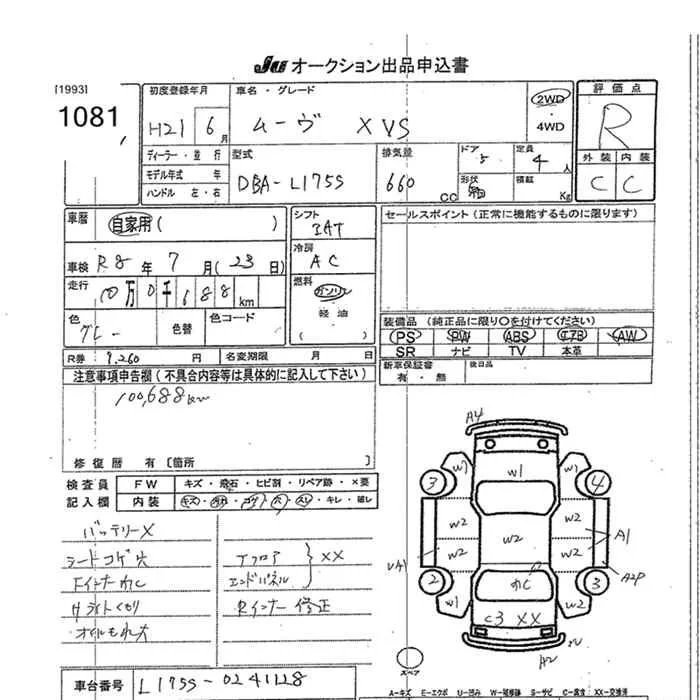 JU オークション出品申込書
[1993]
1081
初度登録年月 H21 6月
車名・グレード ムーヴ X VS
2WD
4WD
評価点
R
ディーラー・並行
モデル年式 年
ハンドル 左・右
型式 DBA-L175S
排気量 660 CC
ドア 5
定員 4 人
形状 箱
積載 Kg
外装 内装
C C
車歴 自家用 ( )
シフト IAT
セールスポイント (正常に機能するものに限ります)
車検 R8 年 7 月 (23日)
冷房 AC
走行 10万0千688km
燃料 ガソリン
軽油
( )
色 グレー
色替
色コード
装備品 (純正品に限り○を付けてください)
PS PW ABS エアB AW
SR ナビ TV 本革
R券 9,260 円 名変期限 月 日
新車保証書 有・無
後日品
注意事項申告欄 (不具合内容等は具体的に記入して下さい)
100,688km
修復歴 有 [箇所 ]
検査員 FW キズ・飛石・ヒビ割・リペア跡・×要
記入欄 内装 キズ・汚れ・コゲ・穴・スレ・キレ・破レ
バッテリーX
シートコゲ穴
Hライトくもり
オイルもれ大
Aフロア
エンドパネル } XX
Rインナー 修正
A4
W1
W1
W1
3
4
W2
W2
W2
W2
W2
A1
UA1
2
3
A2P
W1
W2
C3 XX
A2
スペア
車台番号 L175S-0241128
A-キズ E-エクボ U-凹み W-補修跡 S-サビ C-腐食 XX-交換済